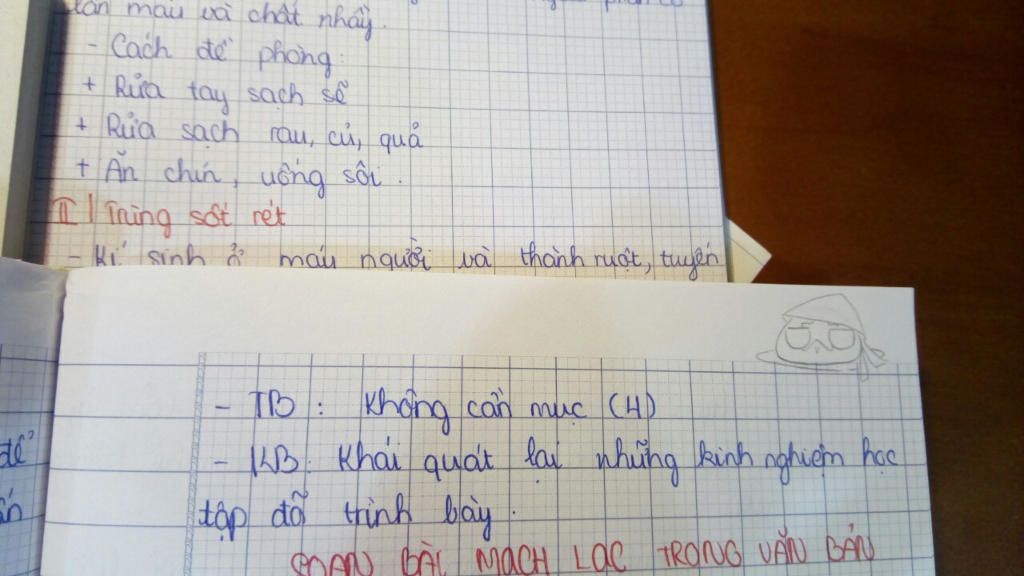 máu và chất nhầy.
- Cách đề phòng:
+ Rửa tay sạch sẽ
+ Rửa sạch rau, củ, quả
+ Ăn chín, uống sôi.
II/ Trùng sốt rét
- Kí sinh ở máu người và thành ruột, tuyến
- TB: Không cần mục (4)
- KB: Khái quát lại những kinh nghiệm học
tập đỗ trình bày.
SOẠN BÀI MẠCH LẠC TRONG VĂN BẢN
để